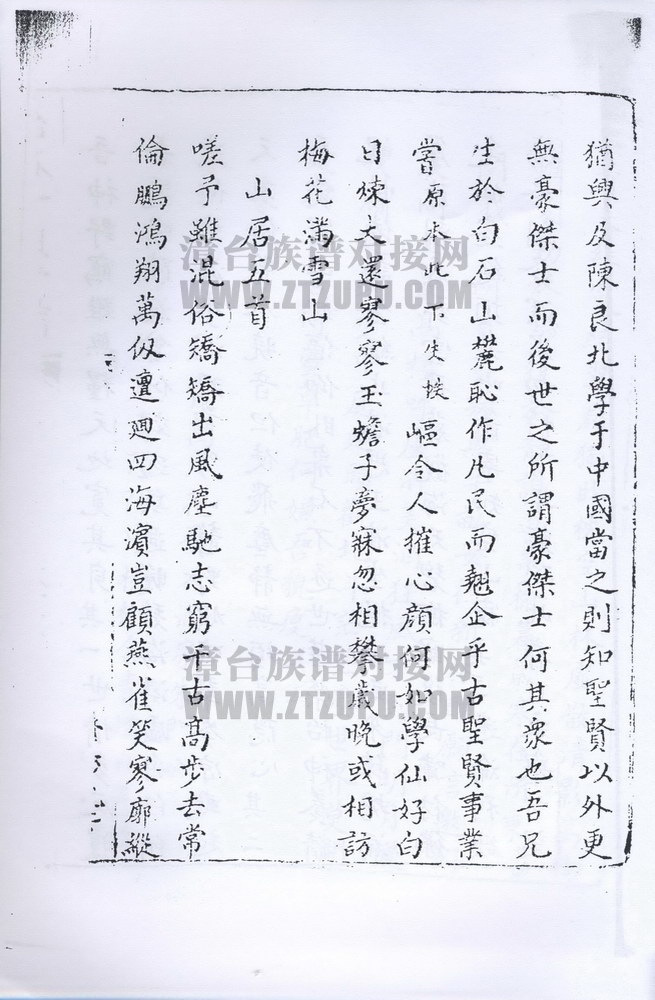 猶興及陳良北學于中國當之則知聖賢以外更
無豪傑士而後世之所謂豪傑士何其衆也吾兄
生於白石山麓恥作凡民而翹企乎古聖賢事業
嘗原本此下生 嶇令人摧心顔何如學仙好白
日煉大還寥寥玉蟾子夢寐忽相攀歲晚或相訪
梅花滿雪山
山居五首
嗟予雖混俗矯矯出風塵馳志窮千古高步去常
倫鵬鴻翔萬仭邅迴四海濱豈顧燕雀笑寥廓縱
漳台族谱对接网
WWW.ZTZUPU.COM
漳台族谱对接网
WWW.ZTZUPU.COM